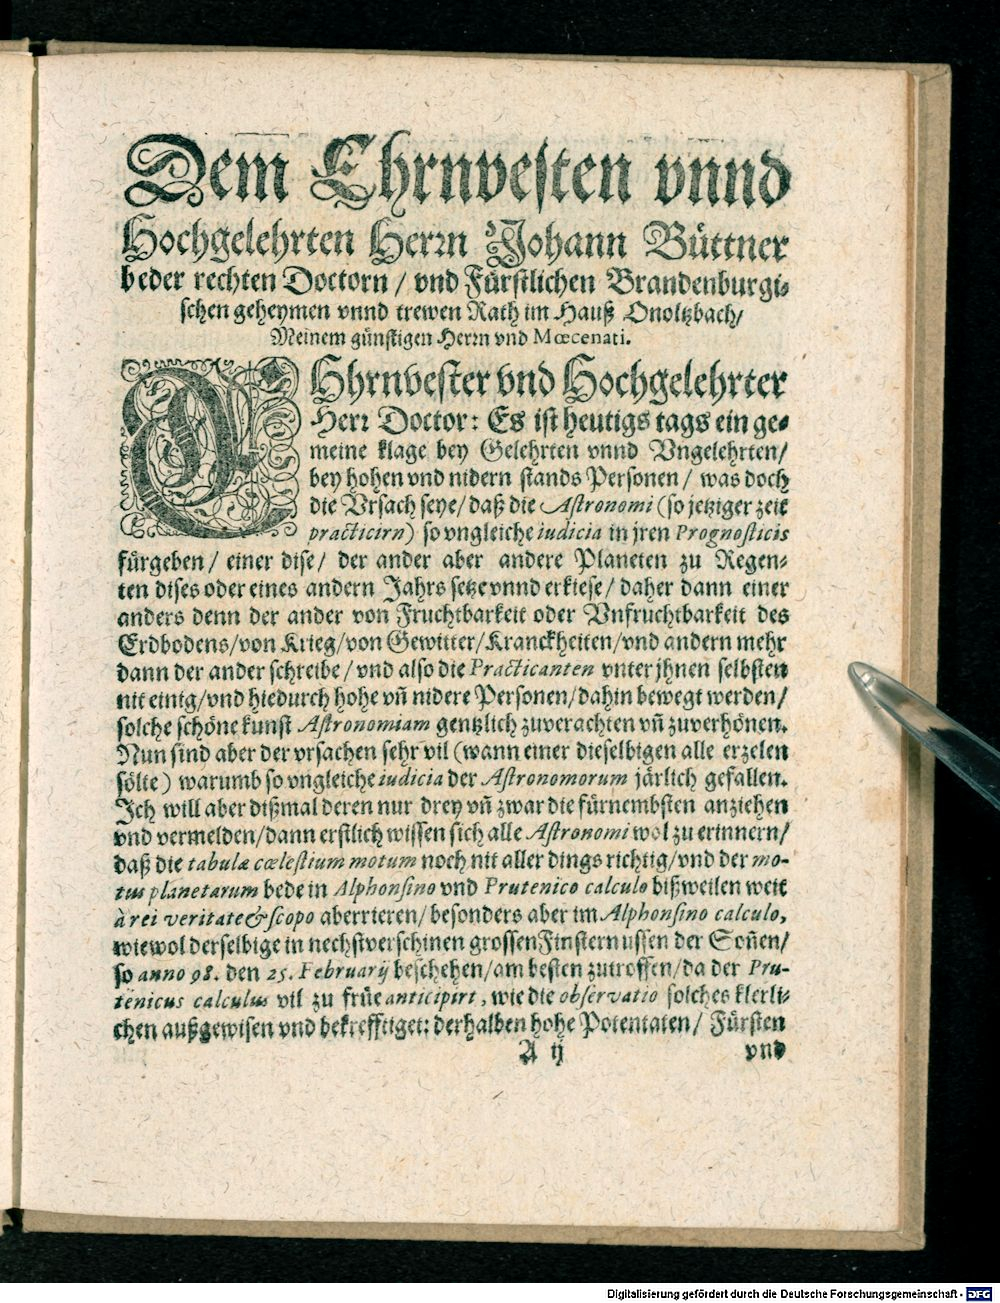 Dem Ehrnvesten vnnd
Hochgelehrten Herrn Johann Büttner
beder rechten Doctorn / vnd Fürstlichen Brandenburgi-
schen geheymen vnnd trewen Rath im Hauß Onoltzbach/
Meinem günstigen Herrn vnd Mœcenati.
EHrnvester vnd Hochgelehrter
Herr Doctor: Es ist heutigs tags ein ge-
meine klage bey Gelehrten vnnd Vngelehrten/
bey hohen vnd nidern stands Personen / was doch
die Vrsach seye/ daß die Astronomi (so jetziger zeit
practicirn) so vngleiche iudicia in jren Prognosticis
fürgeben / einer dise / der ander aber andere Planeten zu Regen-
ten dises oder eines andern Jahrs setze vnnd erkiese / daher dann einer
anders denn der ander von Fruchtbarkeit oder Vnfruchtbarkeit des
Erdbodens/von Krieg/von Gewitter/Kranckheiten/vnd andern mehr
dann der ander schreibe / vnd also die Practicanten vnter jhnen selbsten
nit einig/vnd hiedurch hohe vñ nidere Personen/dahin bewegt werden/
solche schöne kunst Astronomiam gentzlich zuverachten vñ zuverhönen.
Nun sind aber der vrsachen sehr vil (wann einer dieselbigen alle erzelen
sölte) warumb so vngleiche iudicia der Astronomorum järlich gefallen.
Ich will aber dißmal deren nur drey vñ zwar die fürnembsten anziehen
vnd vermelden/dann erstlich wissen sich alle Astronomi wol zu erinnern/
daß die tabulæ cœlestium motum noch nit aller dings richtig/vnd der mo-
tus planetarum bede in Alphonsino vnd Prutenico calculo bißweilen weit
à rei veritate & scopo aberrieren/ besonders aber im Alphonsino calculo,
wiewol derselbige in nechstverschinen grossen Finsternussen der Soñen/
so anno 98. den 25. Februarij beschehen/am besten zutroffen/da der Pru-
tenicus calculus vil zu früe anticipirt, wie die observatio solches klerli-
chen außgewisen vnd bekrefftiget: derhalben hohe Potentaten/ Fürsten
A ij vnd
Digitalisierung gefördert durch die Deutsche Forschungsgemeinschaft - DFG